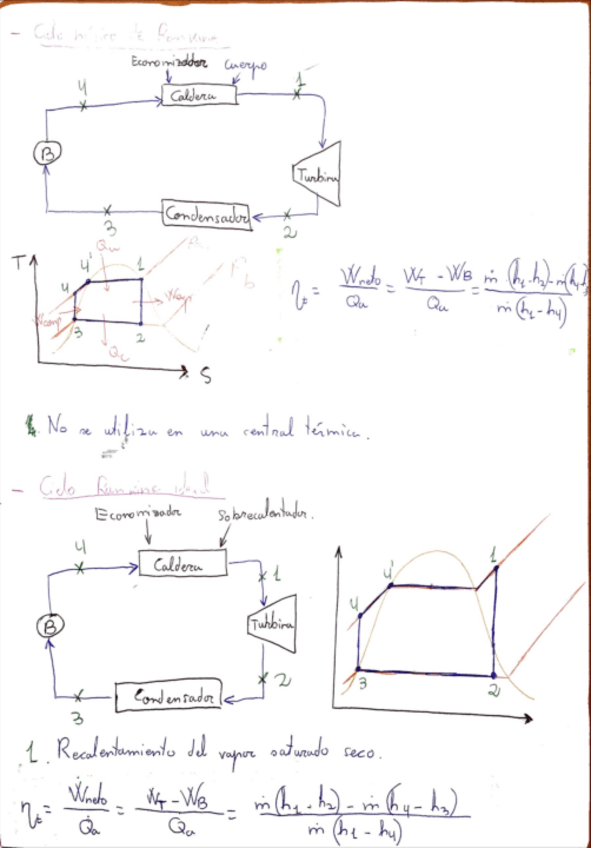 - Ciclo básico de Rankine
Economizador cuerpo
4 Caldera 1
B Turbina
3 Condensador 2
T
4 4' 1
3 2
Qa
Qc
S
ηt = Ẇneto / Qa = ẆT - ẆB / Qa = ṁ(h1-h2) - ṁ(h4-h3) / ṁ(h1-h4)
1. No se utiliza en una central térmica.
- Ciclo Rankine ideal
Economizador Sobrecalentador.
4 Caldera 1
B Turbina
3 Condensador 2
4 4' 1
3 2
1. Recalentamiento del vapor saturado seco.
ηt = Ẇneto / Q̇a = ẆT - ẆB / Qa = ṁ(h1-h2) - ṁ(h4-h3) / ṁ(h1-h4)